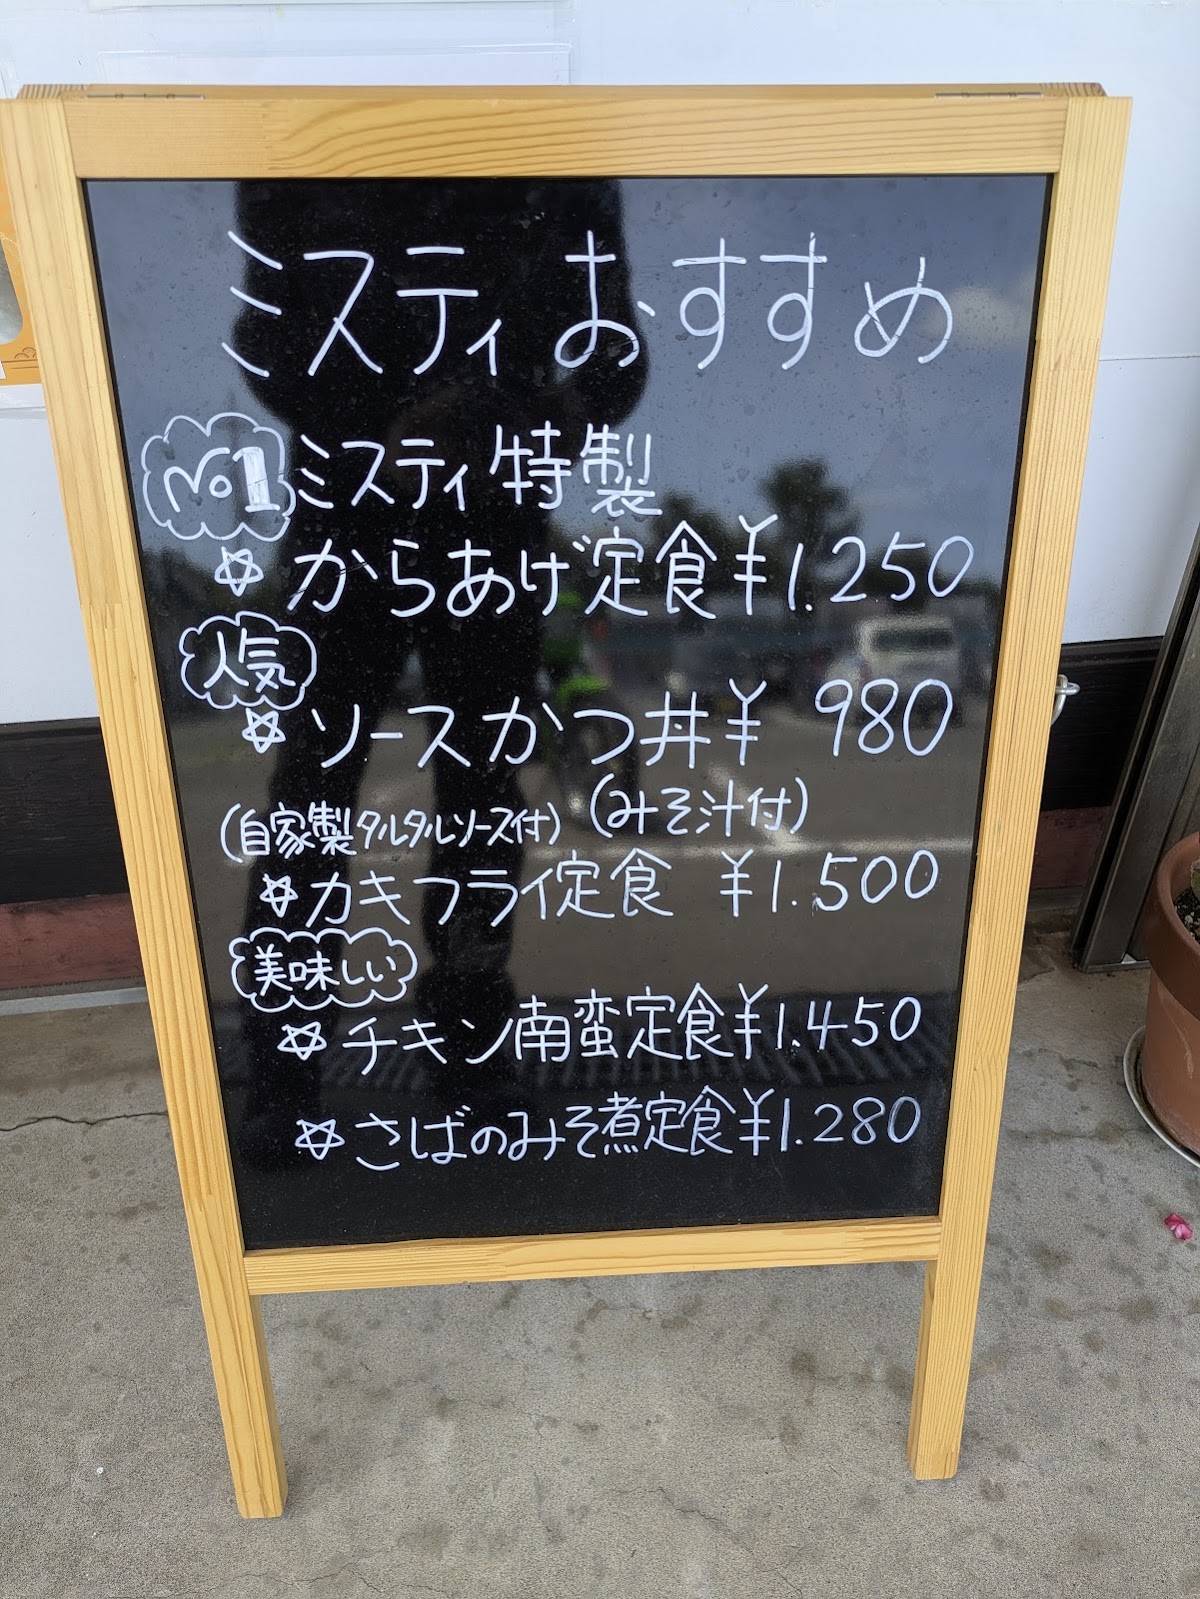 ミスティおすすめ
No1 ミスティ特製
☆からあげ定食¥1.250
人気
☆ソースかつ丼¥ 980
(みそ汁付)
(自家製タルタルソース付)
☆カキフライ定食 ¥1.500
美味しい
☆チキン南蛮定食¥1.450
☆さばのみそ煮定食¥1.280